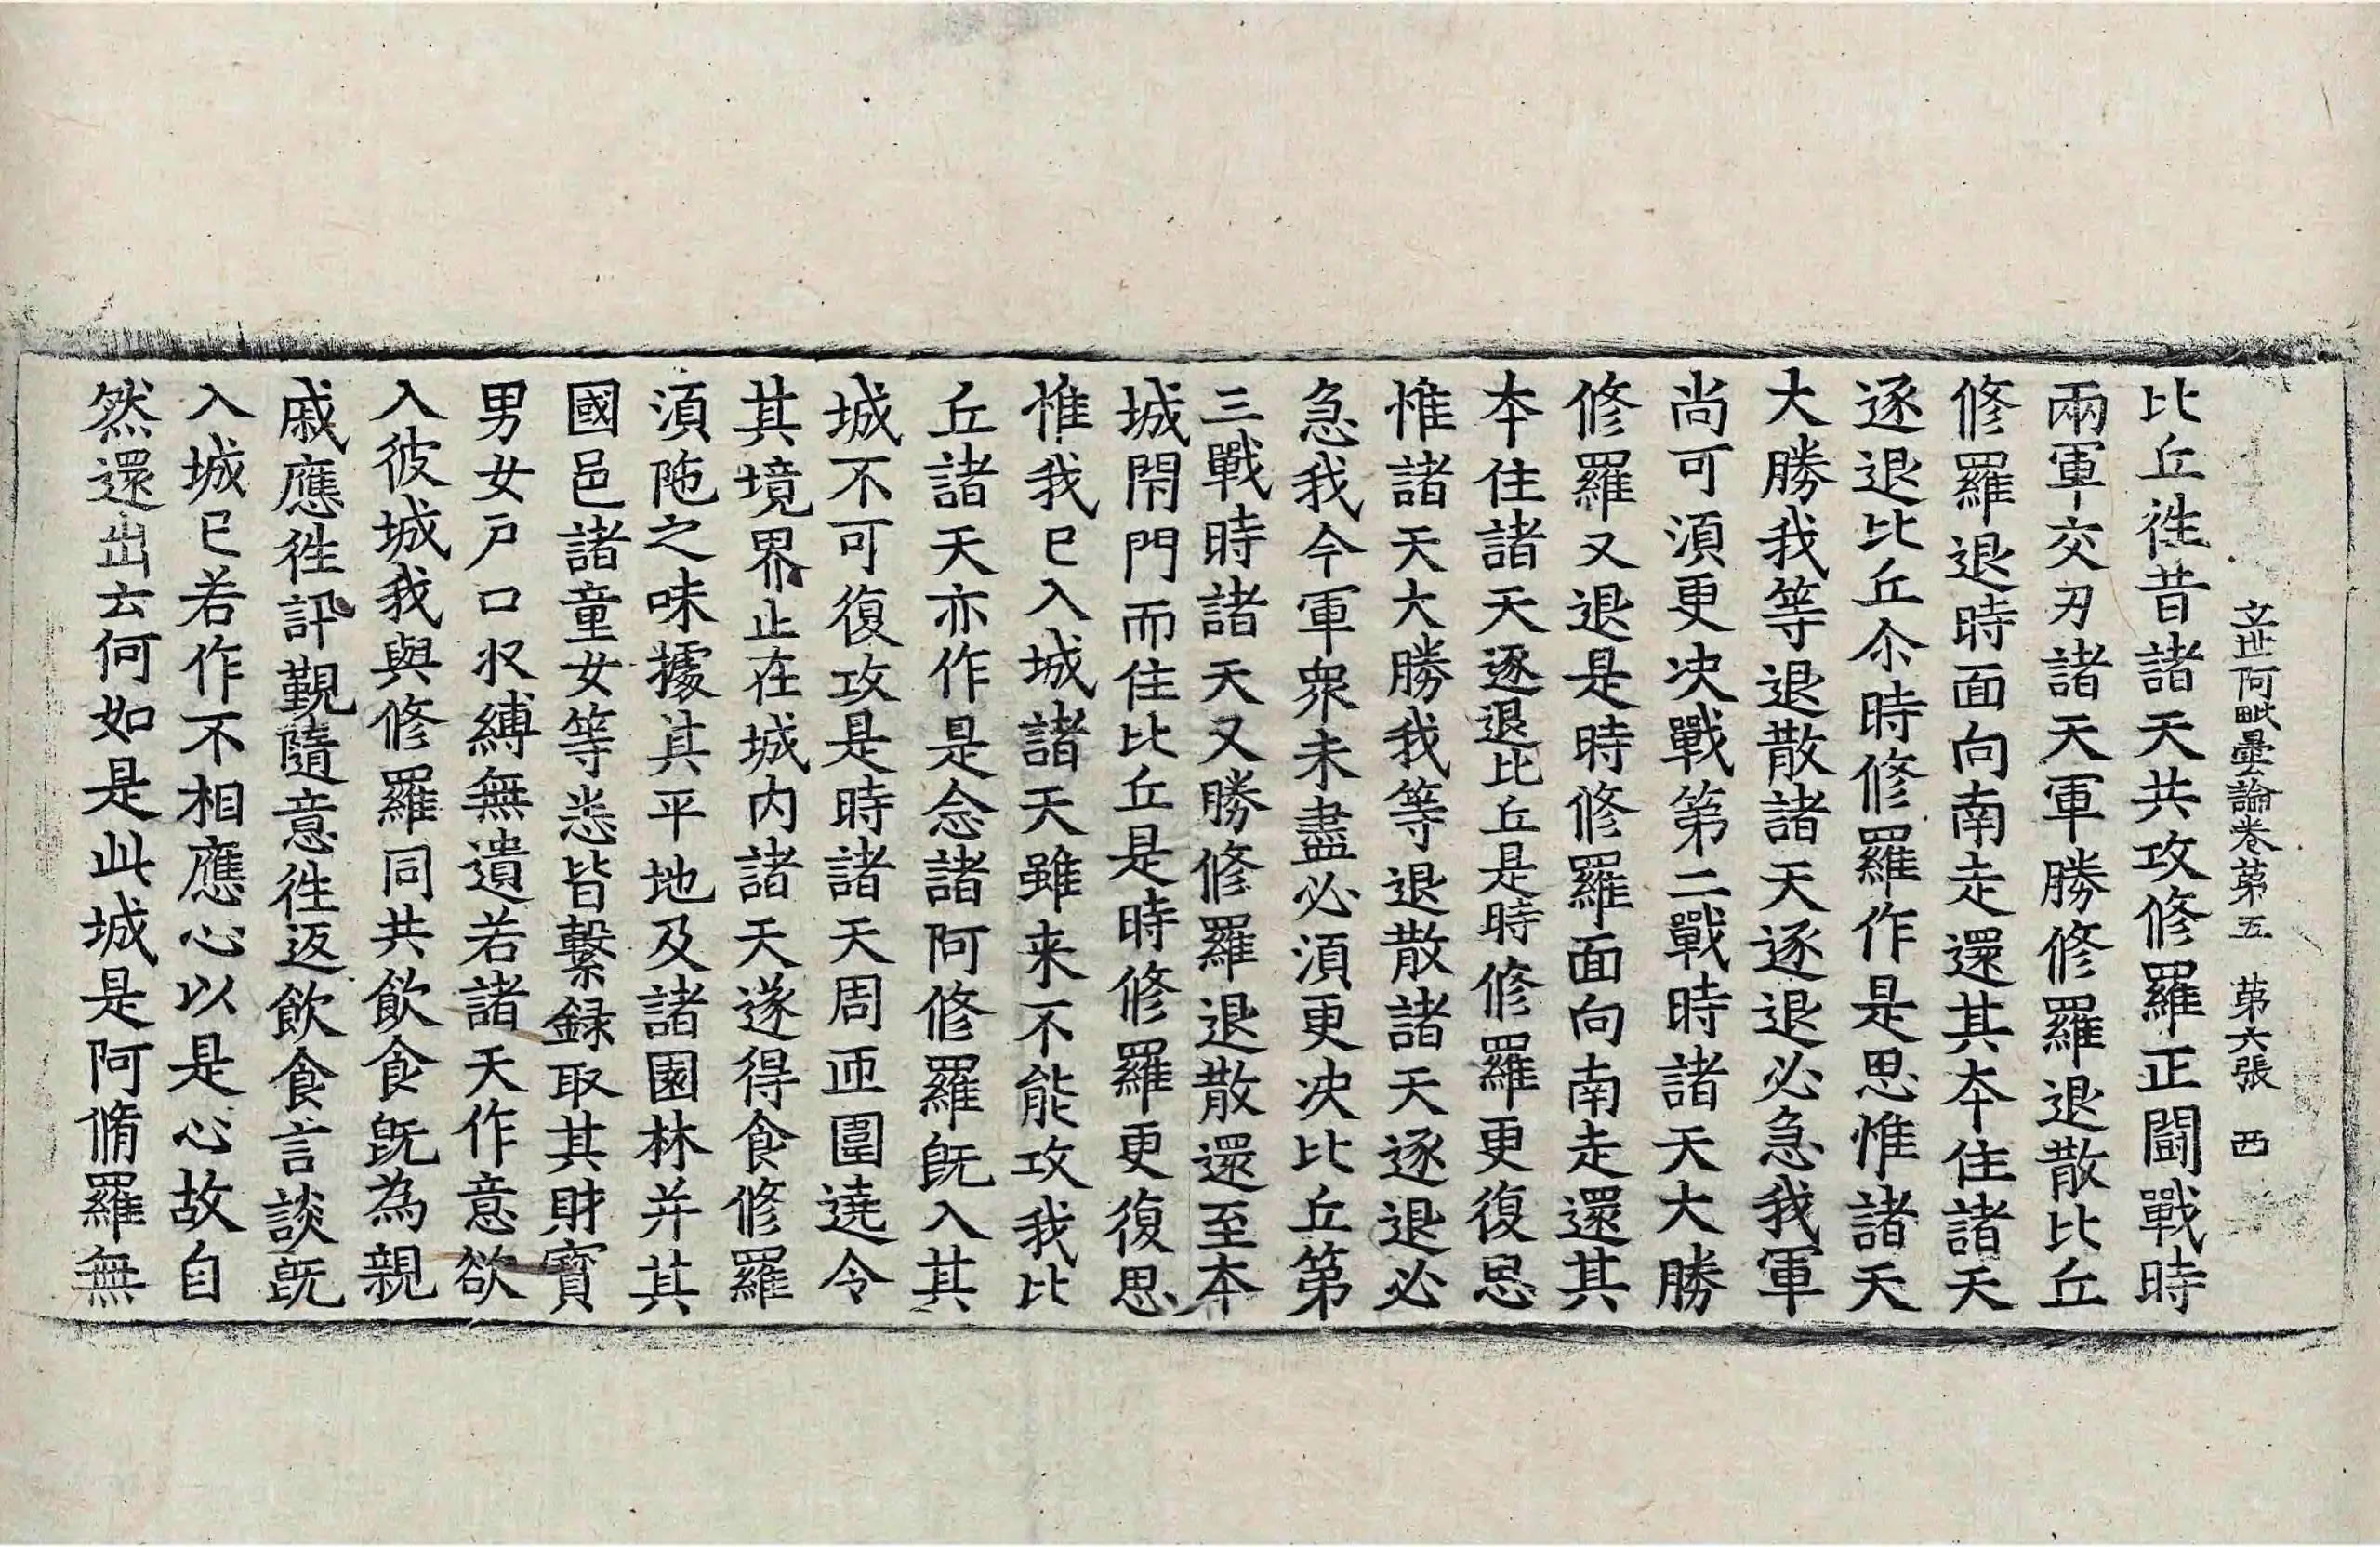 立世阿毗曇論卷第五　第六張　西
比丘徃昔諸天共攻修羅正鬪戰時
兩軍交刃諸天軍勝修羅退散比丘
修羅退時面向南走還其本住諸天
逐退比丘尒時修羅作是思惟諸天
大勝我等退散諸天逐退必急我軍
尚可湏更决戰第二戰時諸天大勝
修羅又退是時修羅面向南走還其
本住諸天逐退比丘是時修羅更復思
惟諸天大勝我等退散諸天逐退必
急我今軍衆未盡必湏更决比丘第
三戰時諸天又勝修羅退散還至本
城閇門而住比丘是時修羅更復思
惟我已入城諸天雖来不能攻我比
丘諸天亦作是念諸阿修羅旣入其
城不可復攻是時諸天周帀圍遶令
其境界止在城内諸天遂得食修羅
湏陁之味據其平地及諸園林并其
國邑諸童女等悉皆繫録取其財寳
男女戸口収縛無遺若諸天作意欲
入彼城我與修羅同共飲食旣為親
戚應徃訊覲隨意徃返飲食言談旣
入城已若作不相應心以是心故自
然還出云何如是此城是阿脩羅無